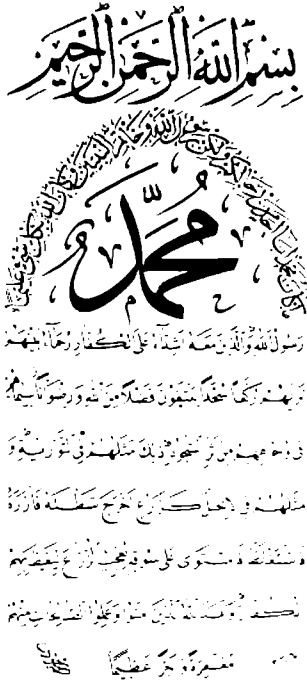 بسم الله الرحمن الرحيم
ما كان محمد أبا أحد من رجالكم ولكن رسول الله وخاتم النبيين وكان الله بكل شيء عليما
محمد
رسول الله والذين معه أشداء على الكفار رحماء بينهم
تريهم ركعا سجدا يبتغون فضلا من الله ورضوانا سيماهم
في وجوههم من أثر السجود ذلك مثلهم في التورية و
مثلهم في الإنجيل كزرع أخرج شطئه فآزره
فاستغلظ فاستوى على سوقه يعجب الزراع ليغيظ بهم
الكفار وعد الله الذين آمنوا وعملوا الصالحات منهم
مغفرة وأجرا عظيما